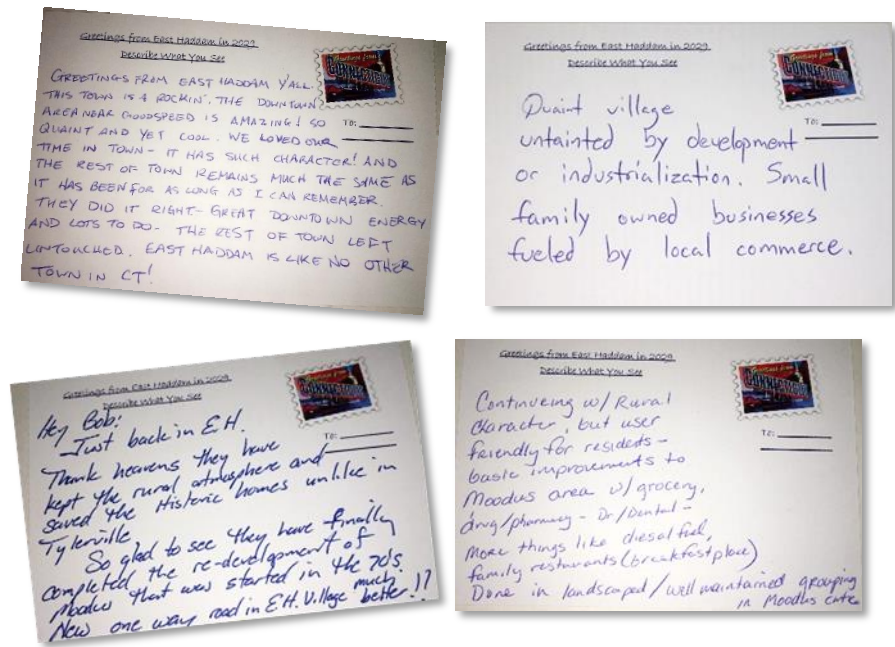 Greetings from East Haddam in 2029
Describe What You See
GREETINGS FROM EAST HADDAM Y'ALL.
THIS TOWN IS A ROCKIN'. THE DOWNTOWN
AREA NEAR GOODSPEED IS AMAZING! SO
QUAINT AND YET COOL. WE LOVED OUR
TIME IN TOWN - IT HAS SUCH CHARACTER! AND
THE REST OF TOWN REMAINS MUCH THE SAME AS
IT HAS BEEN FOR AS LONG AS I CAN REMEMBER.
THEY DID IT RIGHT - GREAT DOWNTOWN ENERGY
AND LOTS TO DO - THE REST OF TOWN LEFT
UNTOUCHED. EAST HADDAM IS LIKE NO OTHER
TOWN IN CT!
Greetings from
CONNECTICUT
To:
Greetings from East Haddam in 2029
Describe What You See
Quaint village
untainted by development
or industrialization. Small
family owned businesses
fueled by local commerce.
Greetings from
CONNECTICUT
To:
Greetings from East Haddam in 2029
Describe What You See
Hey Bob:
Just back in E.H.
Thank heavens they have
kept the rural atmosphere and
saved the Historic homes unlike in
Tylerville
So glad to see they have finally
completed the re-development of
Moodus that was started in the 70's.
New one way road in E.H. Village much
better!!
Greetings from
CONNECTICUT
To:
Greetings from East Haddam in 2029
Describe What You See
Continueing w/ Rural
Character, but user
friendly for residents -
basic improvements to
Moodus area w/ grocery,
drug/pharmacy - Dr/Dental -
more things like diesel fuel,
family resturants (breakfast place)
Done in landscaped/well maintained grouping
in Moodus
Greetings from
CONNECTICUT
To: